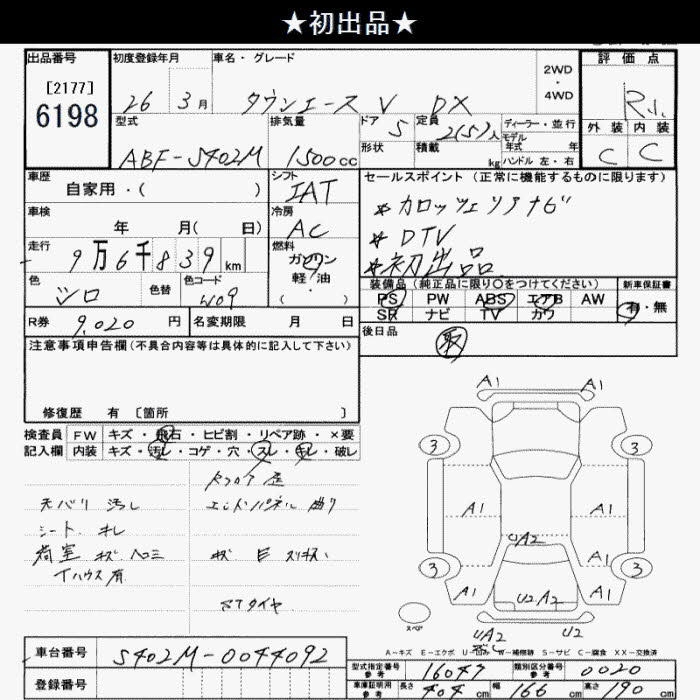 ★初出品★
出品番号 初度登録年月 車名・グレード 2WD・4WD 評価点
[2177]
6198
26 3月 タウンエース V DX
型式 排気量 ドア 5 定員 2(5)人 ディーラー・並行
形状 積載 kg モデル年式 年
ハンドル 左・右
外装 内装
C C
ABF-S402M 1500cc
車歴 シフト セールスポイント (正常に機能するものに限ります)
自家用・( ) IAT
車検 冷房 ＊カロッツェリアナビ
年 月( 日) AC ＊DTV
走行 燃料 ＊初出品
9万6千839km ガソリン
軽油
( )
色 色替 色コード 装備品(純正品に限り○をつけてください) 新車保証書
シロ W09 PS PW ABS エアB AW 有・無
SR ナビ TV カワ
R券 9,020円 名変期限 月 日 後日品
注意事項申告欄(不具合内容等は具体的に記入して下さい) 取
修復歴 有 [箇所 ]
検査員 FW キズ・飛石・ヒビ割・リペア跡・×要
記入欄 内装 キズ・汚レ・コゲ・穴・スレ・キレ・破レ
天バリ 汚し エンドパネル 曲り
シート キレ
荷室 キズ ヘコミ
A1 A1
3 3
A1 A1
UA2
3 3
A1 A1
U2A2
スペア
UA2 U2
A－キズ E－エクボ U－凹み W－補修跡 S－サビ C－腐食 XX－交換済
車台番号 S402M-0044092
型式指定番号 参考 16047 類別区分番号 参考 0020
登録番号 車庫証明用 参考 長さ 404cm 幅 166cm 高さ 190cm